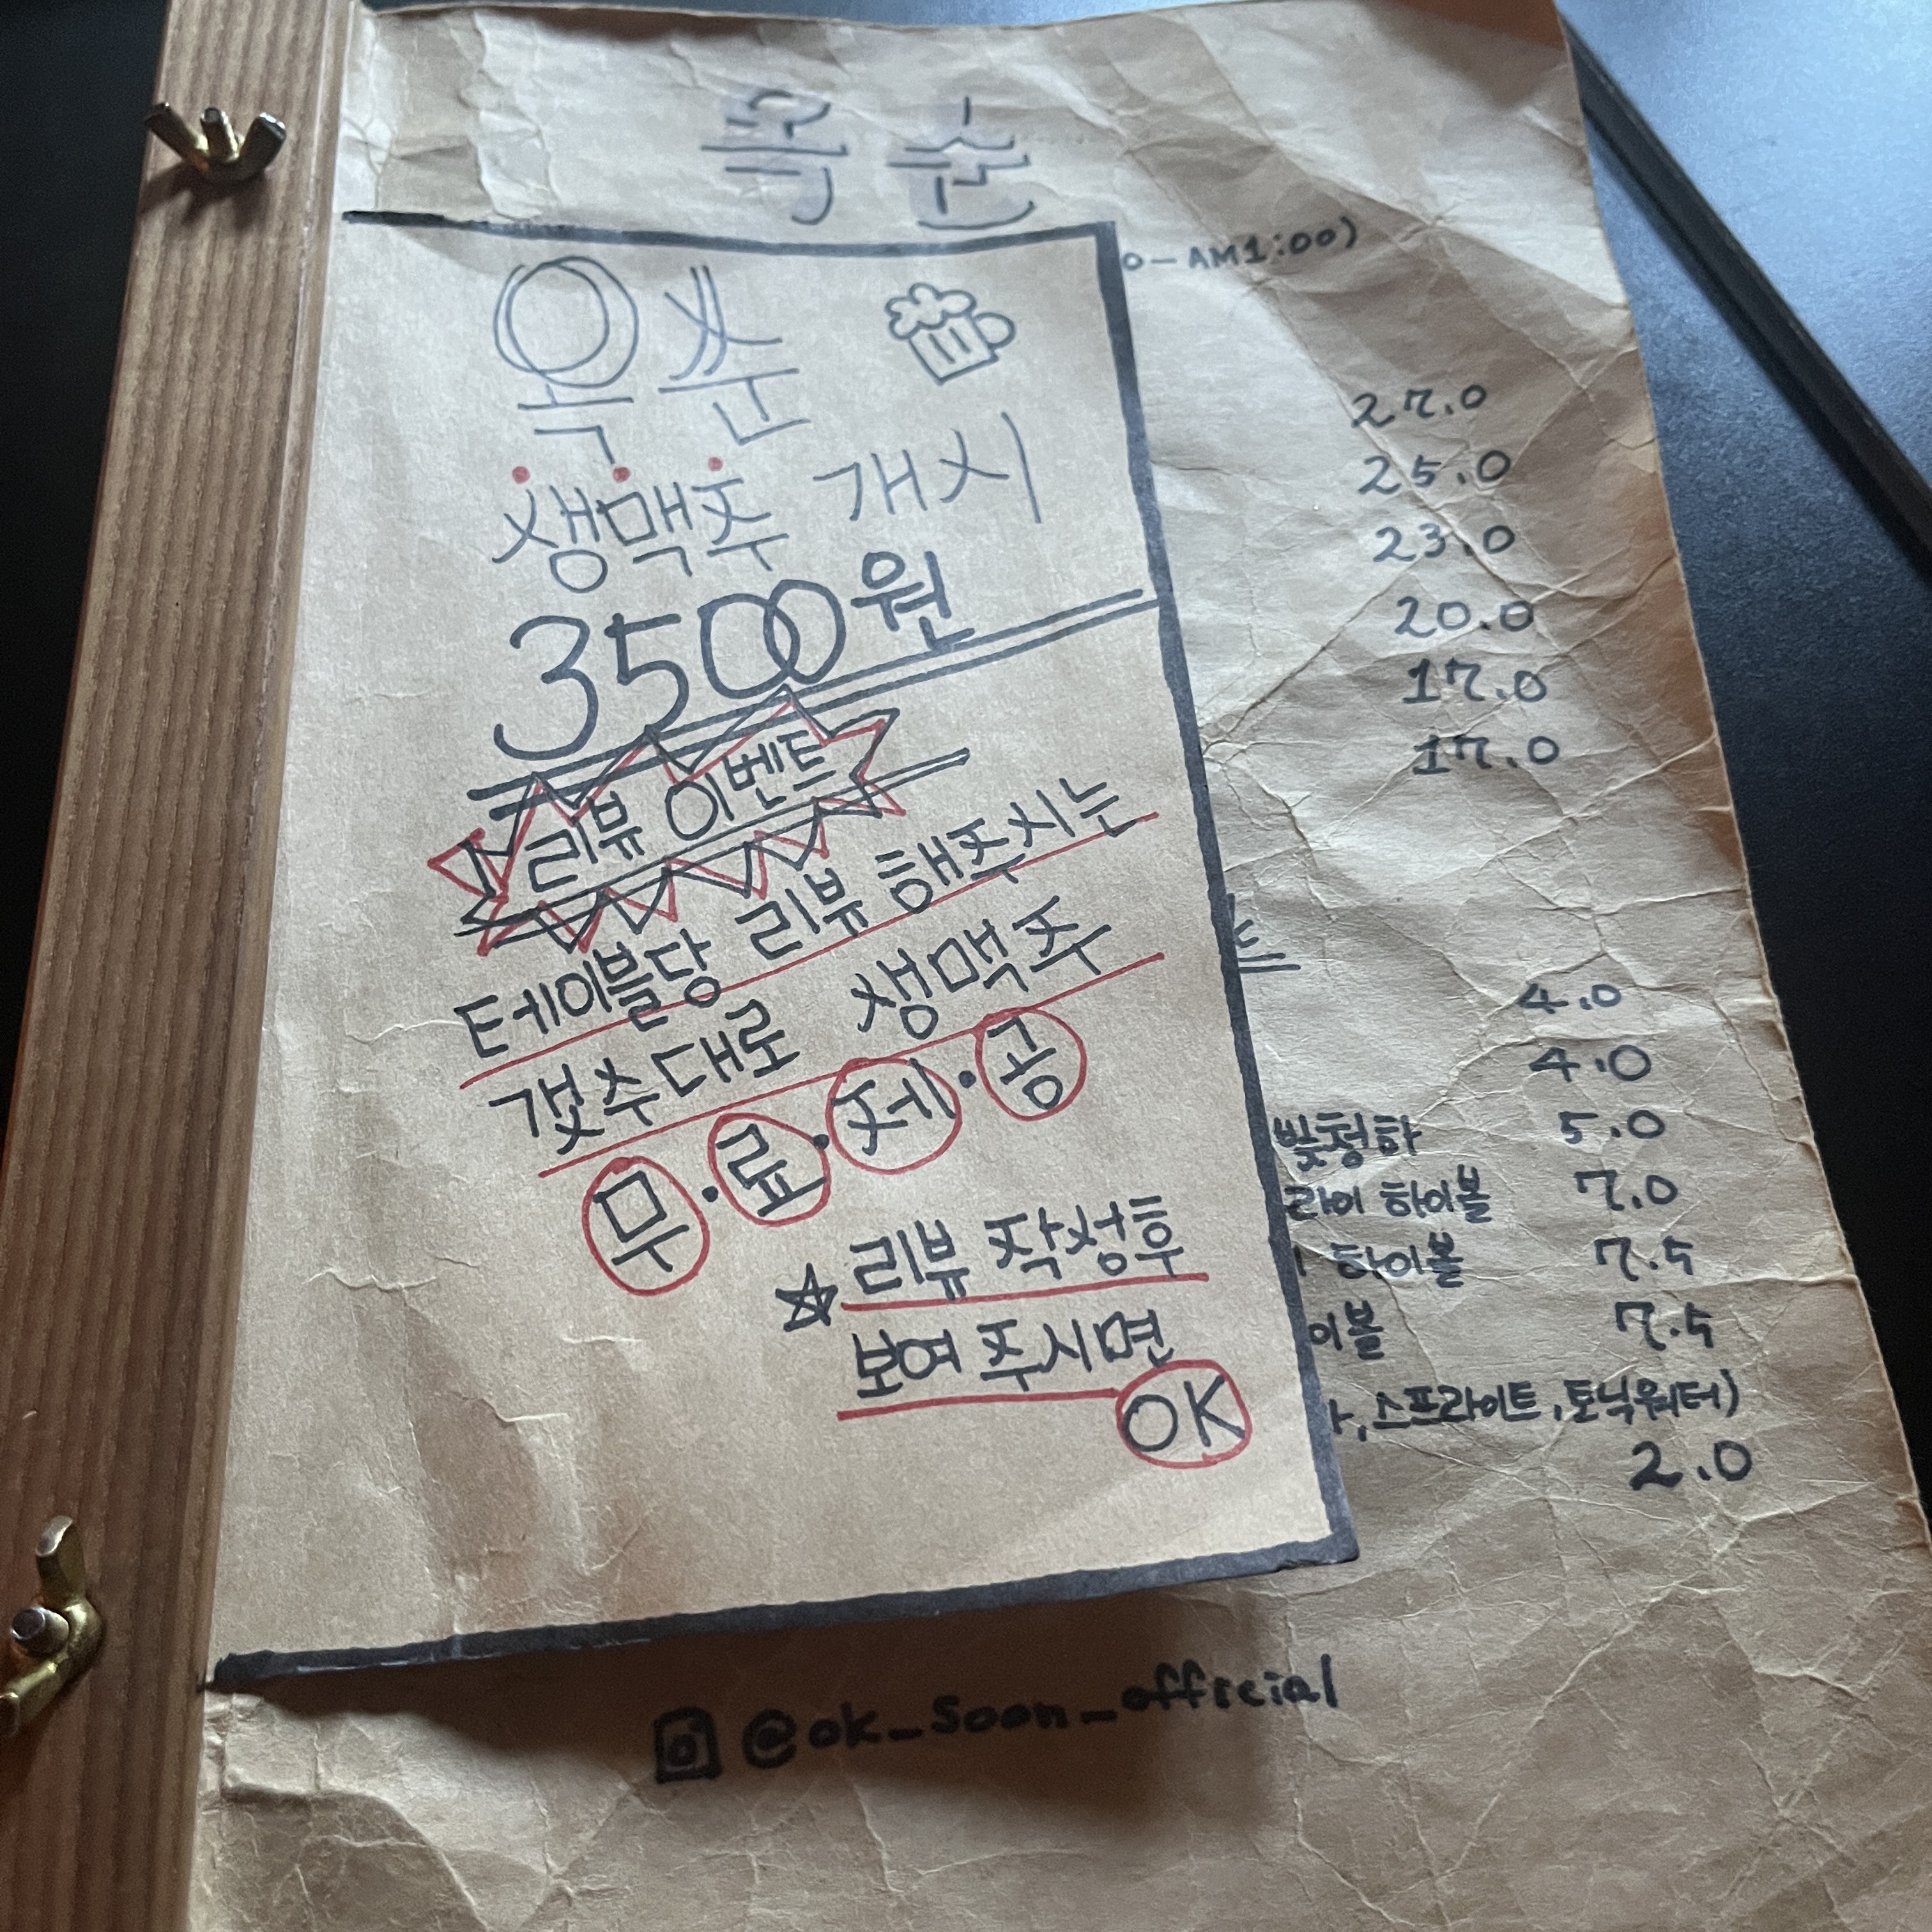 옥순
0-AM1:00)
옥순
생맥주 개시
3500원
리뷰 이벤트
테이블당 리뷰 해주시는
갯수대로 생맥주
무·료·제·공
☆ 리뷰 작성후
보여 주시면
OK
27.0
25.0
23.0
20.0
17.0
17.0
4.0
4.0
빛청하 5.0
라이 하이볼 7.0
하이볼 7.5
이볼 7.5
, 스프라이트, 토닉워터)
2.0
@ok_soon_official